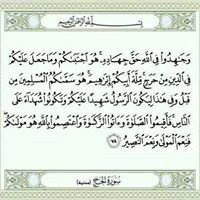 بِسْمِ ٱللَّهِ ٱلرَّحْمَٰنِ ٱلرَّحِيمِ
وَجَٰهِدُوا۟ فِى ٱللَّهِ حَقَّ جِهَادِهِۦ ۚ هُوَ ٱجْتَبَىٰكُمْ وَمَا جَعَلَ عَلَيْكُمْ
فِى ٱلدِّينِ مِنْ حَرَجٍ ۚ مِّلَّةَ أَبِيكُمْ إِبْرَٰهِيمَ ۚ هُوَ سَمَّىٰكُمُ ٱلْمُسْلِمِينَ مِن
قَبْلُ وَفِى هَٰذَا لِيَكُونَ ٱلرَّسُولُ شَهِيدًا عَلَيْكُمْ وَتَكُونُوا۟ شُهَدَآءَ عَلَى
ٱلنَّاسِ ۚ فَأَقِيمُوا۟ ٱلصَّلَوٰةَ وَءَاتُوا۟ ٱلزَّكَوٰةَ وَٱعْتَصِمُوا۟ بِٱللَّهِ هُوَ مَوْلَىٰكُمْ ۖ
فَنِعْمَ ٱلْمَوْلَىٰ وَنِعْمَ ٱلنَّصِيرُ ٧٨
سُورَةُ الْحَجِّ